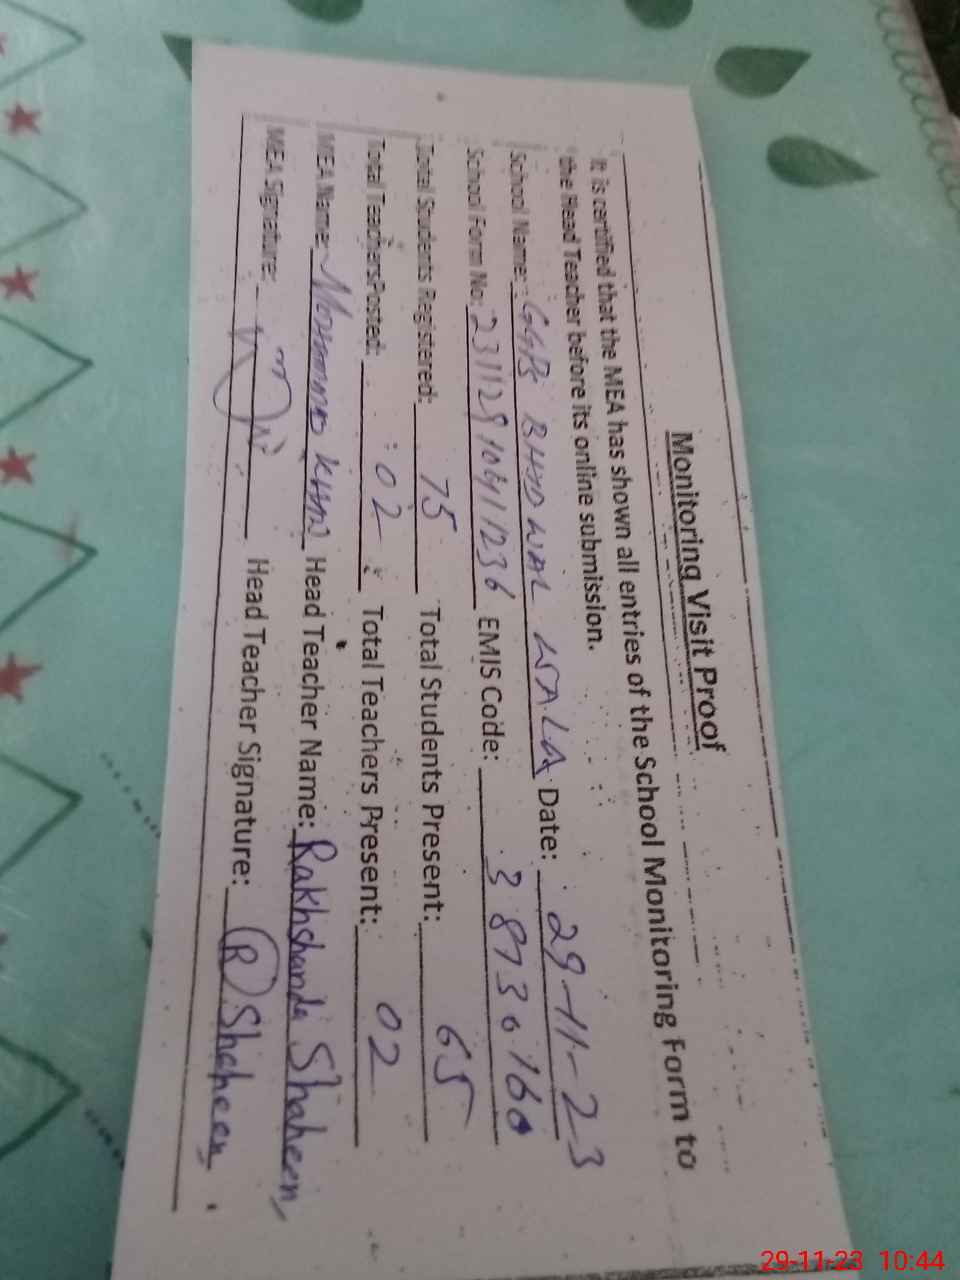 Monitoring Visit Proof
It is certified that the MEA has shown all entries of the School Monitoring Form to
the Head Teacher before its online submission.
School Name: GGPS BHID WAL WALA Date: 29-11-23
School Form No: EMIS Code: 38730160
Total Students Registered: 75 Total Students Present: 65
Total TeachersPosted: 02 Total Teachers Present: 02
MEA Name: Head Teacher Name: Rakhshanda Shaheen
MEA Signature: Head Teacher Signature: R Shaheen
29-11-23 10:44